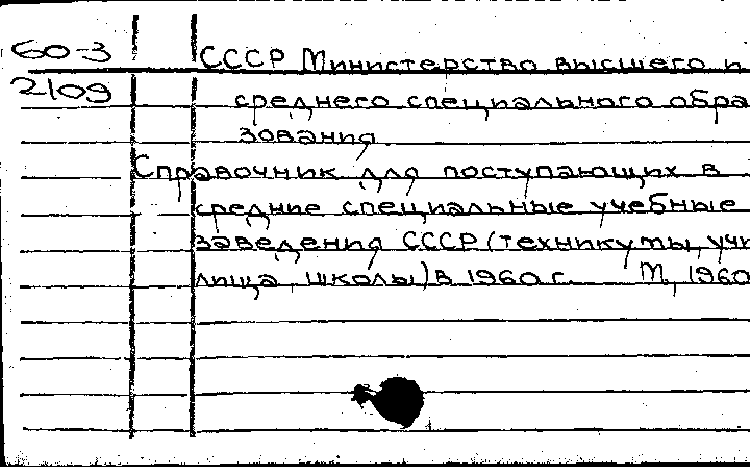 60-3 СССР Министерство высшего и
2109 среднего специального обра
зования.
Справочник для поступающих в
средние специальные учебные
заведения СССР (техникумы, учи
лища, школы) в 1960 г. М., 1960